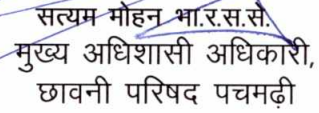 सत्यम मोहन भा.र.स.से.
मुख्य अधिशासी अधिकारी,
छावनी परिषद पचमढ़ी